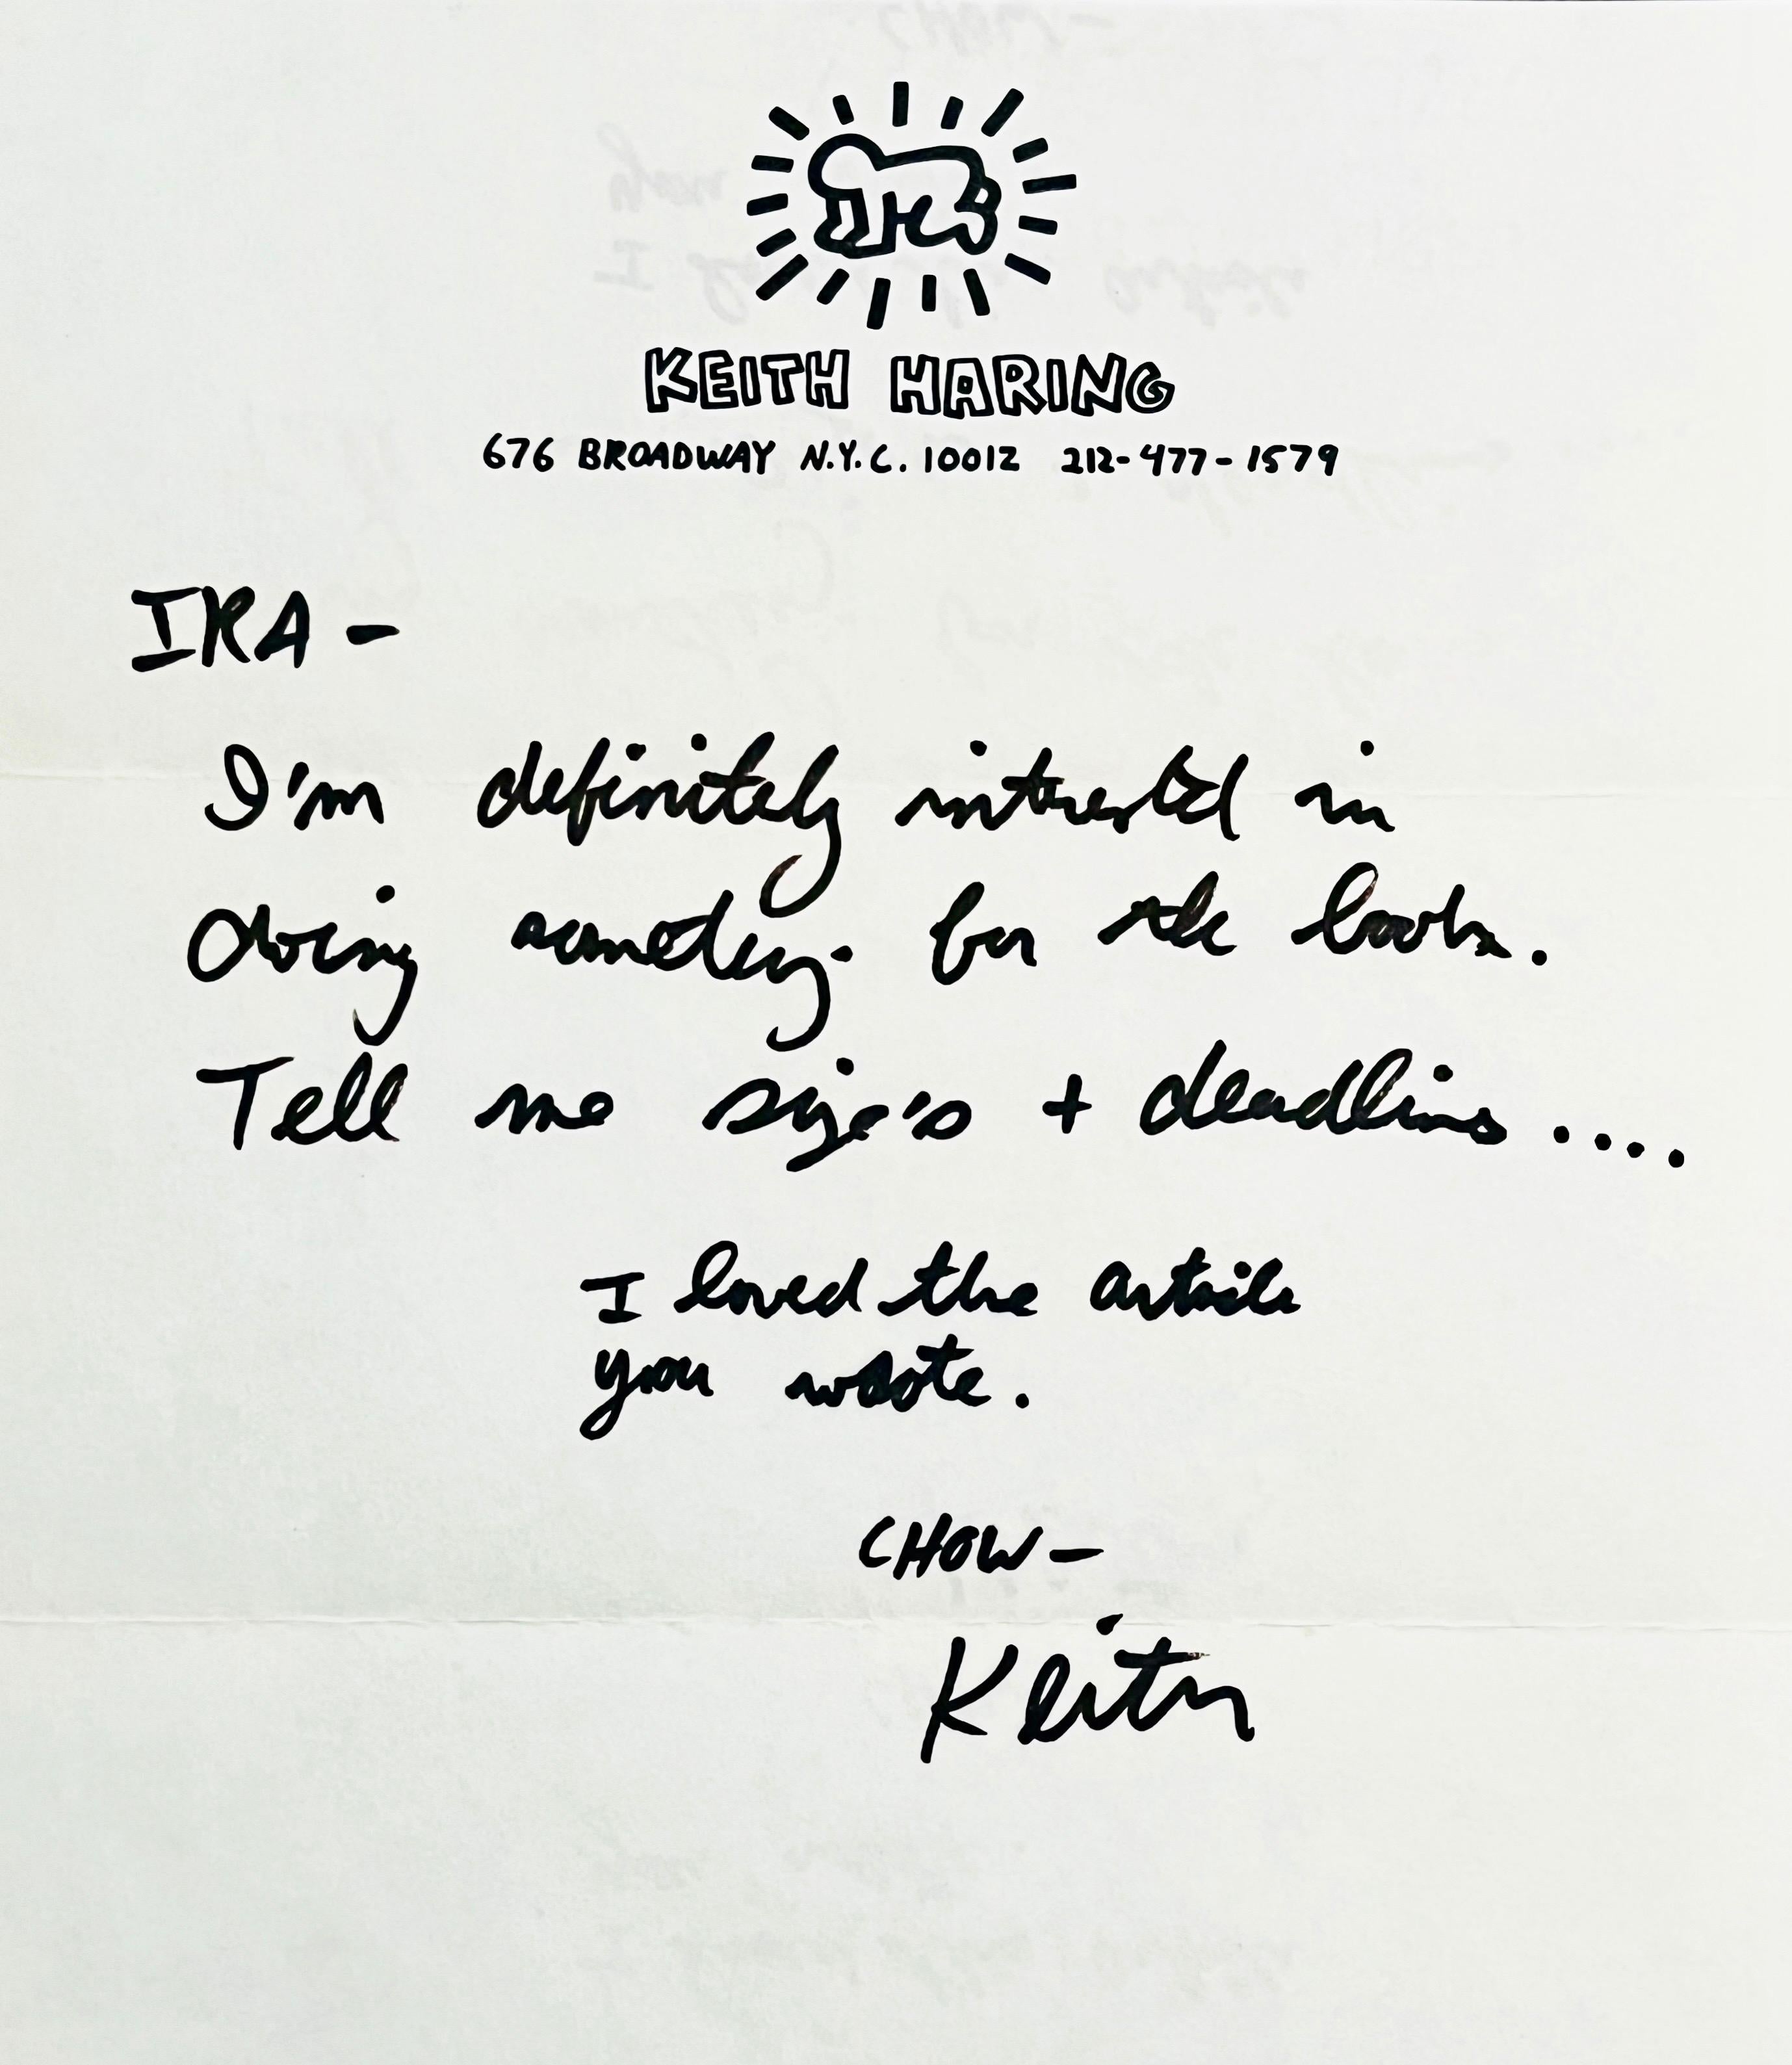 KEITH HARING
676 BROADWAY N.Y.C. 10012 212-477-1579
IRA –
I'm definitely interested in
doing something for the book.
Tell me size's + deadlines ....
I loved the article
you wrote.
CHOW –
Keith